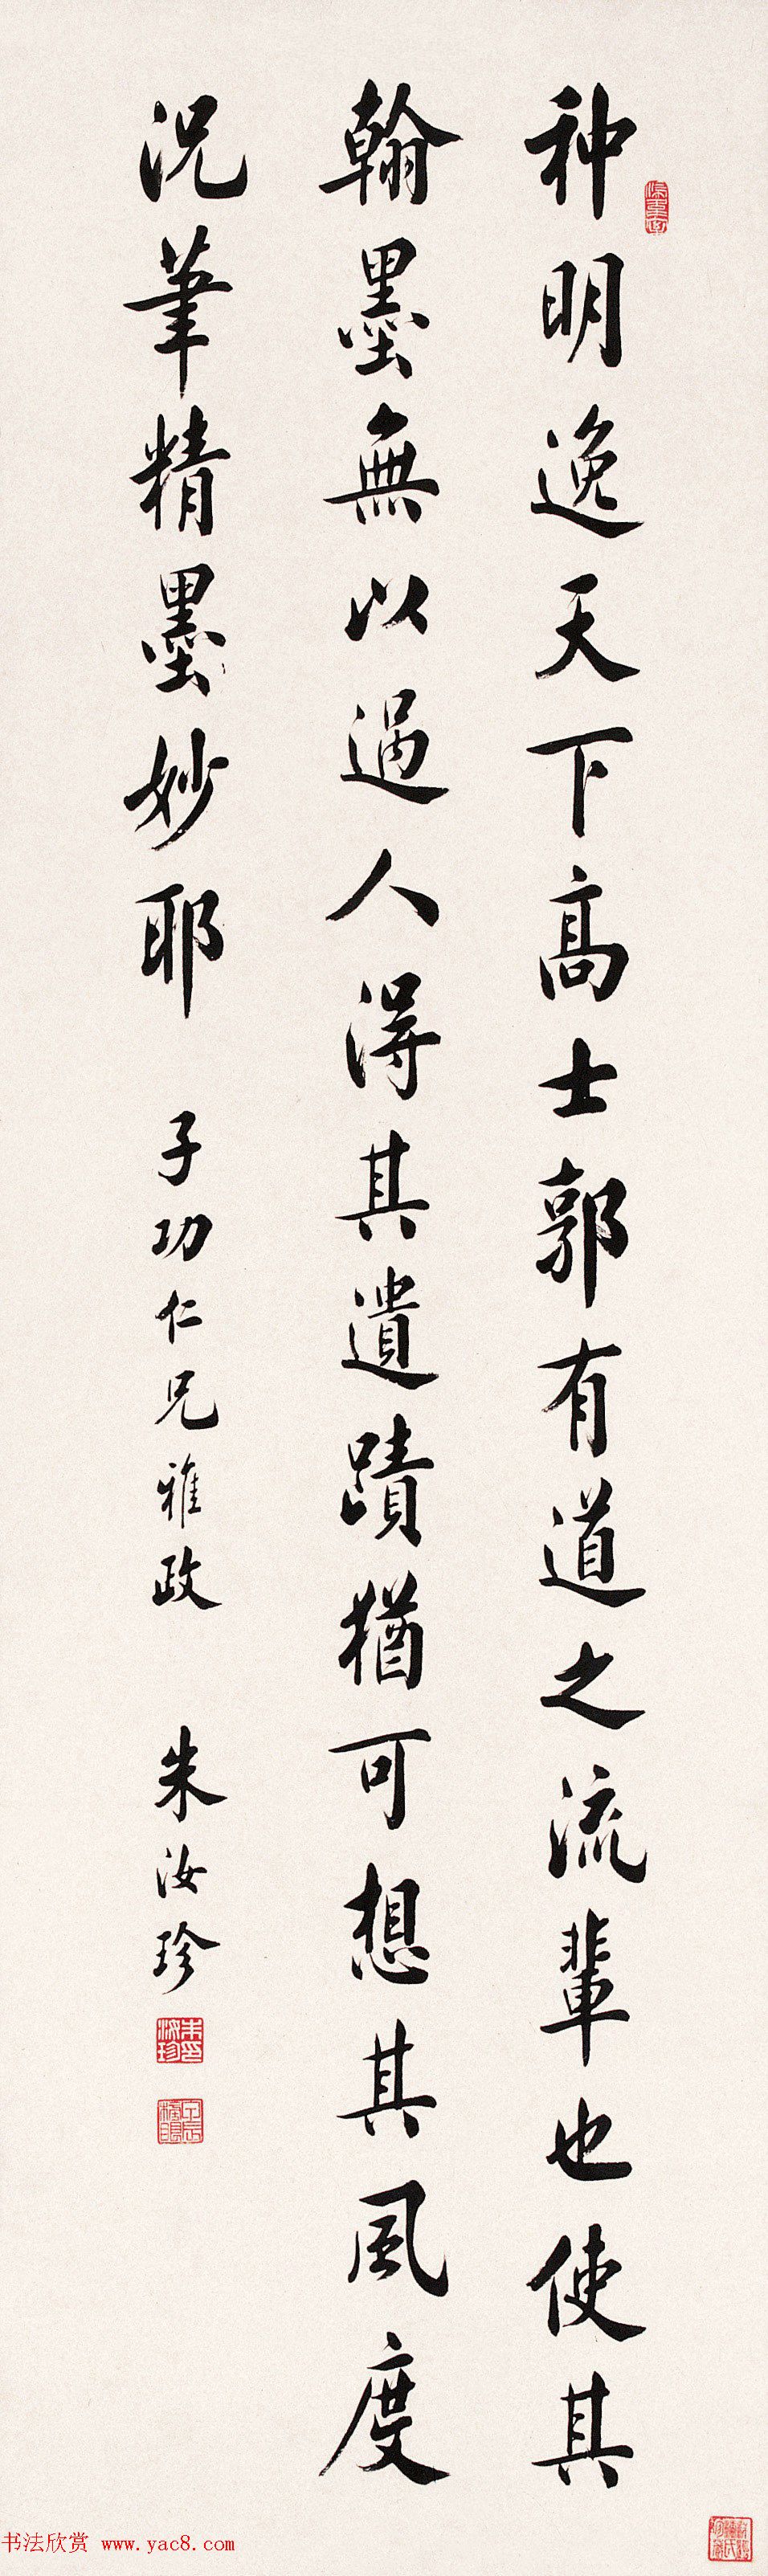 种明逸天下高士郭有道之流輩也使其
翰墨無以過人得其遺蹟猶可想其風度
況筆精墨妙耶
子功仁兄雅政
朱汝珍
書法欣賞 www.yac8.com